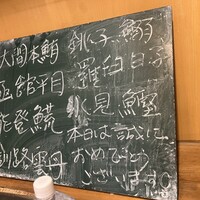 大間本鮪
函館平目
能登
釧路雲丹
銚子 鰯
羅臼白子
氷見 鰹
本日は誠に
おめでとう
ございます。